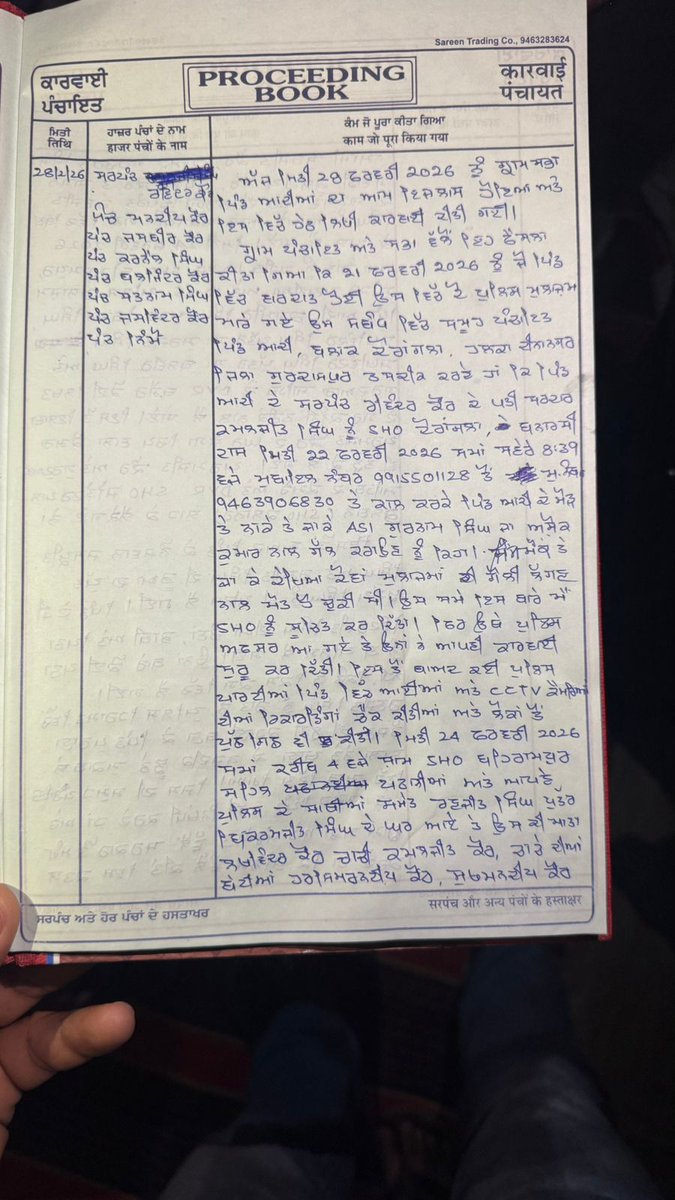 Sareen Trading Co., 9463283624
ਕਾਰਵਾਈ
ਪੰਚਾਇਤ
PROCEEDING
BOOK
कारवाई
पंचायत
ਮਿਤੀ
तिथि
ਹਾਜ਼ਰ ਪੰਚਾਂ ਦੇ ਨਾਮ
हाजर पंचों के नाम
ਕੰਮ ਜੋ ਪੂਰਾ ਕੀਤਾ ਗਿਆ
काम जो पूरा किया गया
28/2/26
ਸਰਪੰਚ
ਰਵਿੰਦਰ ਕੌਰ
ਪੰਚ ਮਨਦੀਪ ਕੌਰ
ਪੰਚ ਜਸਬੀਰ ਕੌਰ
ਪੰਚ ਕਰਨੈਲ ਸਿੰਘ
ਪੰਚ ਬਲਜਿੰਦਰ ਕੌਰ
ਪੰਚ ਸਤਨਾਮ ਸਿੰਘ
ਪੰਚ ਜਸਵਿੰਦਰ ਕੌਰ
ਪੰਚ ਨਿੰਮੋ
ਅੱਜ ਮਿਤੀ 28 ਫਰਵਰੀ 2026 ਨੂੰ ਗ੍ਰਾਮ ਸਭਾ
ਪਿੰਡ ਆਦੀਆਂ ਦਾ ਆਮ ਇਜਲਾਸ ਹੋਇਆ ਅਤੇ
ਇਸ ਵਿੱਚ ਹੇਠ ਲਿਖੀ ਕਾਰਵਾਈ ਕੀਤੀ ਗਈ।
ਗ੍ਰਾਮ ਪੰਚਾਇਤ ਅਤੇ ਸਭਾ ਵੱਲੋਂ ਇਹ ਫੈਸਲਾ
ਕੀਤਾ ਗਿਆ ਕਿ 21 ਫਰਵਰੀ 2026 ਨੂੰ ਜੋ ਪਿੰਡ
ਵਿੱਚ ਵਾਰਦਾਤ ਹੋਈ ਉਸ ਵਿੱਚ ਦੋ ਪੁਲਿਸ ਮੁਲਾਜ਼ਮ
ਮਾਰ ਗਏ ਉਸ ਸਬੰਧ ਵਿੱਚ ਸਮੂਹ ਪੰਚਾਇਤ
ਪਿੰਡ ਆਦੀ, ਬਲਾਕ ਦੋਰਾਂਗਲਾ, ਹਲਕਾ ਦੀਨਾਨਗਰ
ਜਿਲਾ ਗੁਰਦਾਸਪੁਰ ਤਸਦੀਕ ਕਰਦੇ ਹਾਂ ਕਿ ਪਿੰਡ
ਆਦੀ ਦੇ ਸਰਪੰਚ ਰਵਿੰਦਰ ਕੌਰ ਦੇ ਪਤੀ ਸਰਦਾਰ
ਕਮਲਜੀਤ ਸਿੰਘ ਨੂੰ SHO ਦੋਰਾਂਗਲਾ, ਬਨਾਰਸੀ
ਦਾਸ ਮਿਤੀ 22 ਫਰਵਰੀ 2026 ਸਮਾਂ ਸਵੇਰੇ 8:39
ਵਜੇ ਮੋਬਾਇਲ ਨੰਬਰ 9915501128 ਤੋਂ
9463906830 ਤੇ ਕਾਲ ਕਰਕੇ ਪਿੰਡ ਆਦੀ ਦੇ ਮੋੜ
ਤੇ ਨਾਕੇ ਤੇ ਜਾਕੇ ASI ਗੁਰਨਾਮ ਸਿੰਘ ਜਾਂ ਅਸ਼ੋਕ
ਕੁਮਾਰ ਨਾਲ ਗੱਲ ਕਰਾਉਣ ਨੂੰ ਕਿਹਾ। ਮੌਕੇ ਤੇ
ਜਾ ਕੇ ਦੇਖਿਆ ਦੋਵਾਂ ਮੁਲਾਜਮਾਂ ਦੀ ਗੋਲੀ ਲੱਗਣ
ਨਾਲ ਮੌਤ ਹੋ ਚੁਕੀ ਸੀ। ਉਸ ਸਮੇਂ ਇਸ ਬਾਰੇ ਮੈਂ
SHO ਨੂੰ ਸੂਚਿਤ ਕਰ ਦਿੱਤਾ। ਫਿਰ ਉਥੇ ਪੁਲਿਸ
ਅਫਸਰ ਆ ਗਏ ਤੇ ਉਨਾਂ ਨੇ ਆਪਣੀ ਕਾਰਵਾਈ
ਸ਼ੁਰੂ ਕਰ ਦਿੱਤੀ। ਇਸ ਤੋਂ ਬਾਅਦ ਕਈ ਪੁਲਿਸ
ਪਾਰਟੀਆਂ ਪਿੰਡ ਵਿੱਚ ਆਈਆਂ ਅਤੇ CCTV ਕੈਮਰਿਆਂ
ਦੀਆਂ ਰਿਕਾਰਡਿੰਗਾਂ ਚੈਕ ਕੀਤੀਆਂ ਅਤੇ ਲੋਕਾਂ ਤੋਂ
ਪੁੱਛ ਗਿਛ ਵੀ ਕੀਤੀ। ਮਿਤੀ 24 ਫਰਵਰੀ 2026
ਸਮਾਂ ਕਰੀਬ 4 ਵਜੇ ਸ਼ਾਮ SHO ਬਹਿਰਾਮਪੁਰ
ਸਹਿਲ ਪਠਾਣੀਆਂ ਅਤੇ ਆਪਣੇ
ਪੁਲਿਸ ਦੇ ਸਾਥੀਆਂ ਸਮੇਤ ਰਣਜੀਤ ਸਿੰਘ ਪੁੱਤਰ
ਬਿਕਰਮਜੀਤ ਸਿੰਘ ਦੇ ਘਰ ਆਏ ਤੇ ਉਸ ਦੀ ਮਾਤਾ
ਲਖਵਿੰਦਰ ਕੌਰ ਚਾਚੀ, ਕਮਲਜੀਤ ਕੌਰ, ਚਾਚੇ ਦੀਆਂ
ਬੇਟੀਆਂ ਹਰਸਿਮਰਨਦੀਪ ਕੌਰ, ਸੁਖਮਨਦੀਪ ਕੌਰ
ਸਰਪੰਚ ਅਤੇ ਹੋਰ ਪੰਚਾਂ ਦੇ ਹਸਤਾਖਰ
सरपंच और अन्य पंचों के हस्ताक्षर